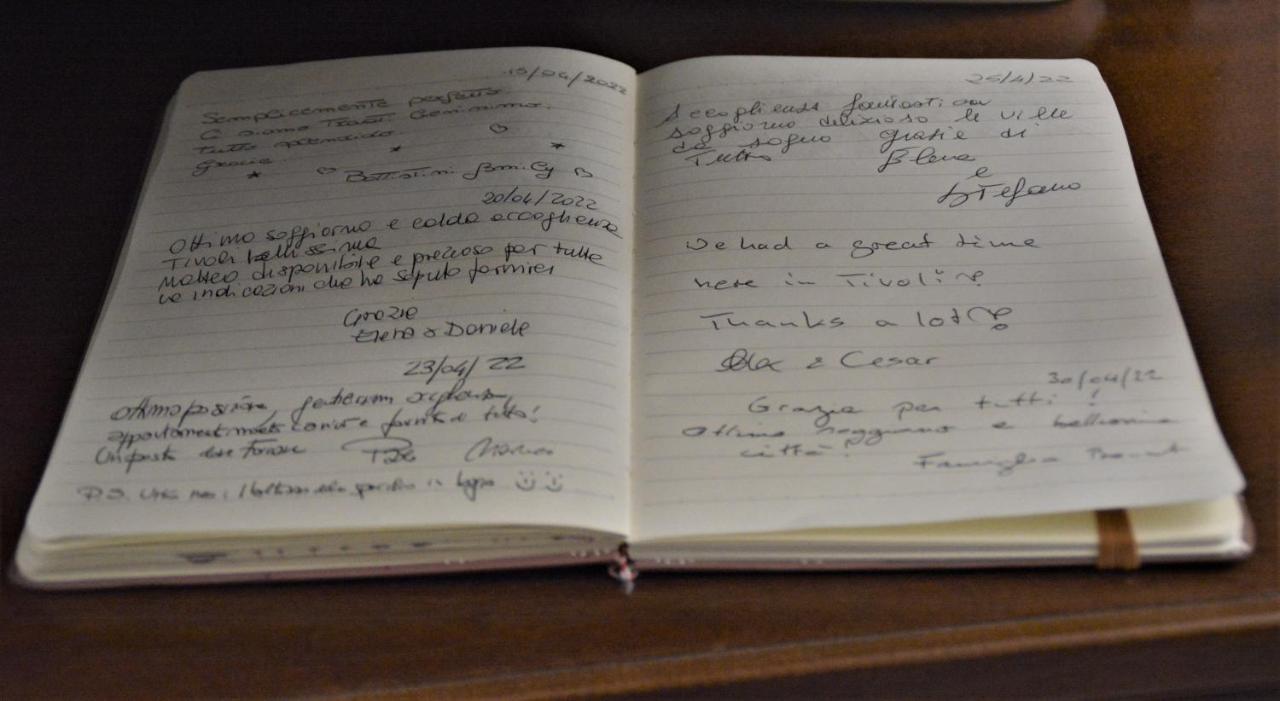 15/04/2022
Semplicemente perfetto
Ci siamo trovati benissimo.
tutto splendido
Grazie
Battistini family
20/04/2022
Ottimo soggiorno e calda accoglienza
Tivoli bellissima
Matteo disponibile e prezioso per tutte
le indicazioni che ha saputo fornirci
Grazie
Elena & Daniele
23/04/22
Ottima posizione,
appartamento e fornito di tutto!
P.S.
25/4/22
Accoglienza fantastica
soggiorno delizioso le ville
da sogno grazie di
Tutto Elena
e
Stefano
We had a great time
here in Tivoli
Thanks a lot
& Cesar
30/04/22
Grazie per tutti!
Ottimo soggiorno e bellissima
città!
Famiglia